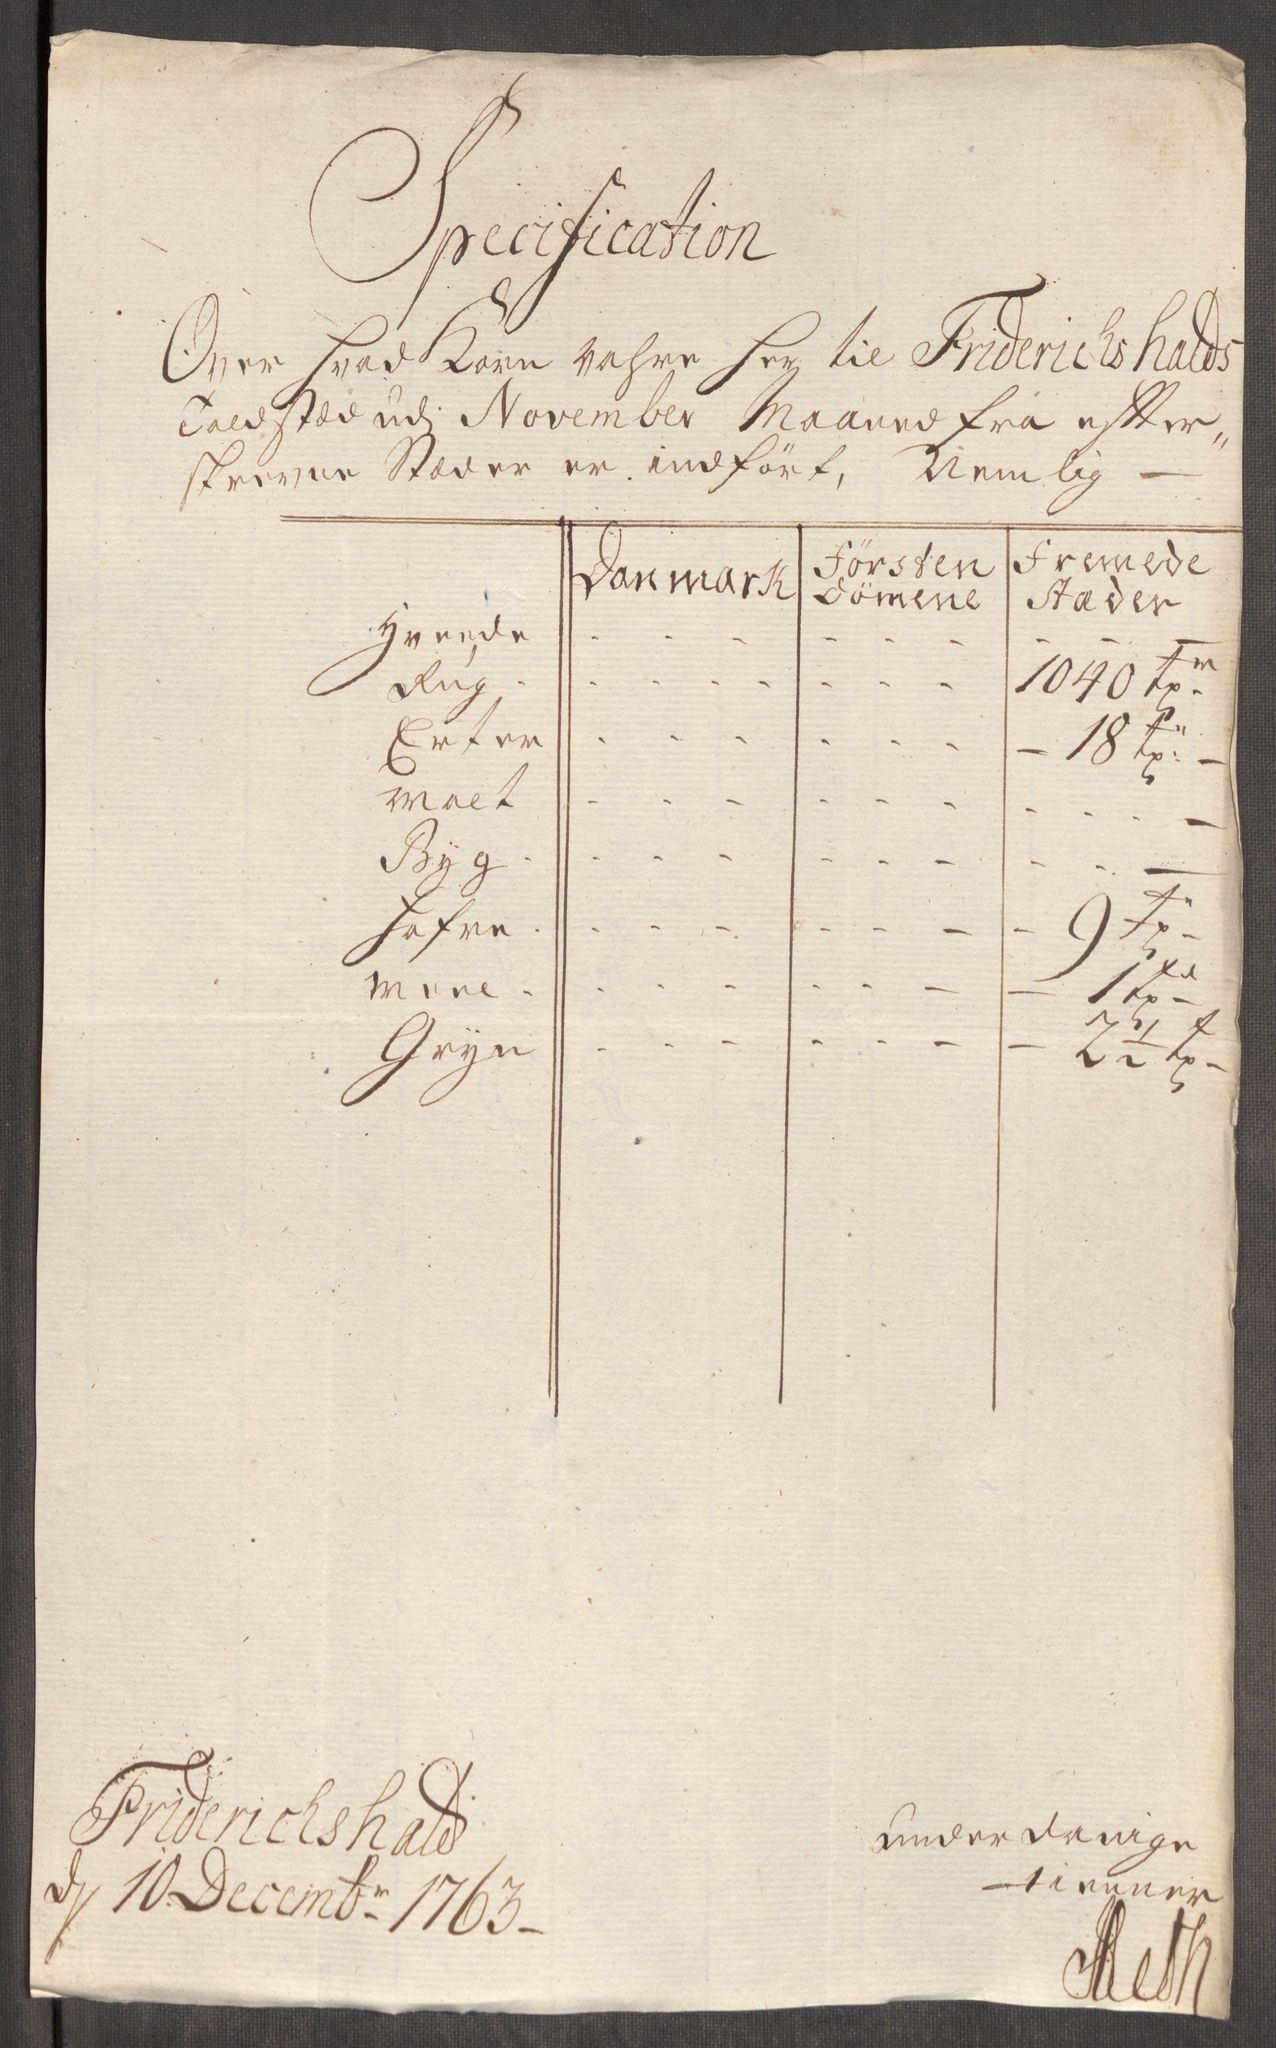 Specification
Over hvad Korn vahre her til Friderichshalds
Toldstæd udj November Maaned fra efter„
skrevne Stæder er indført, Nemlig —
Danmark Försten Fremede
dömene Stæder
Hveede - - - - - - - - —
Rug - - - - - - - - 1040 tr
Erter - - - - - - — 18 tr —
Malt - - - - - - - - - —
Byg - - - - - - - - - —
Hafre - - - - - — - 9 tr -
Meel - - - - - - — — 1 td -
Gryn - - - - - — — 2 1/2 t -
Friderichshald
d 10 Decembr 1763 -
underdanige
tienner